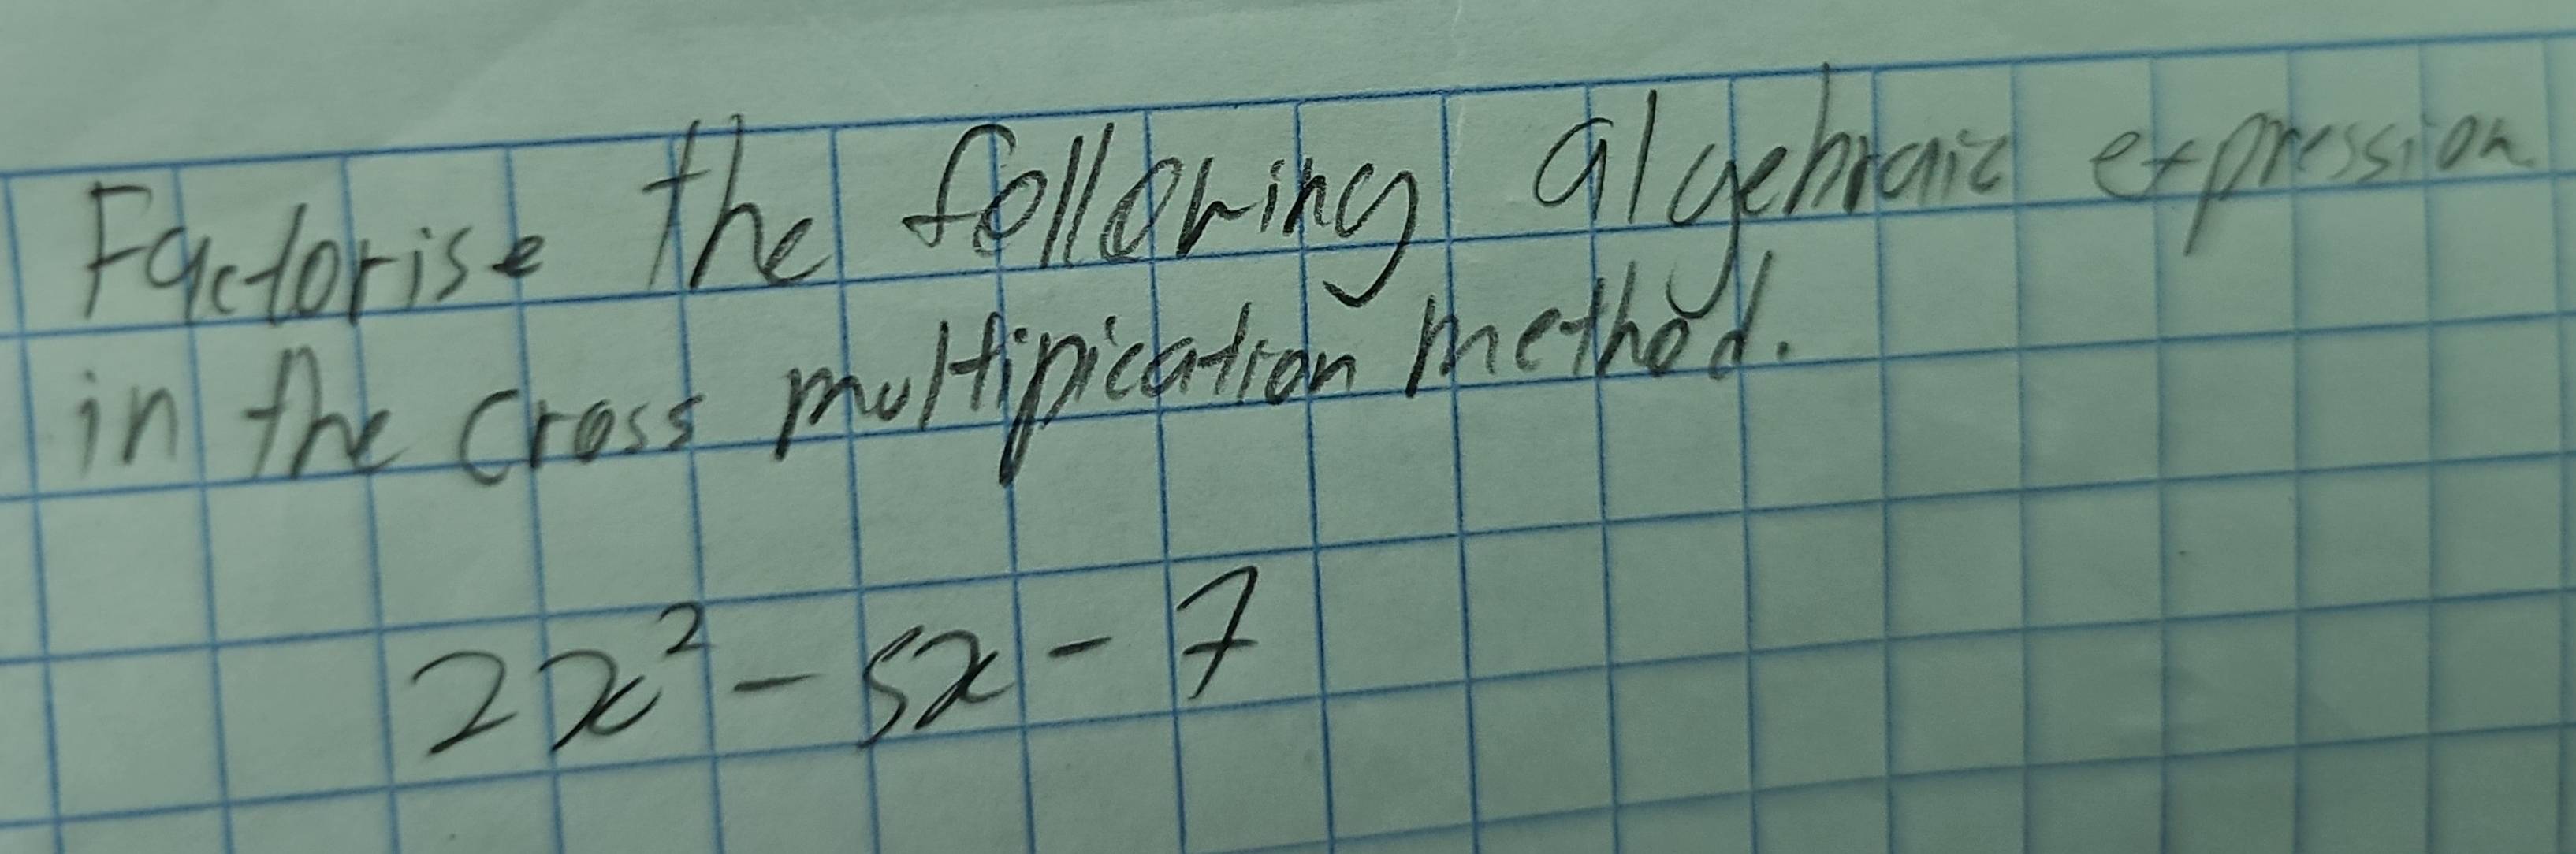 Factorise the following algebraic expression
in the cross multipication method.
2x² - 5x - 7